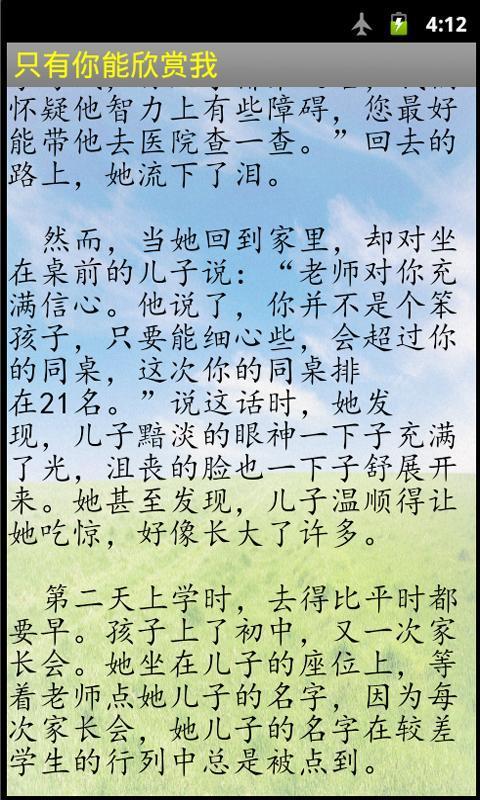 4:12
只有你能欣赏我
怀疑他智力上有些障碍，您最好
能带他去医院查一查。”回去的
路上，她流下了泪。
然而，当她回到家里，却对坐
在桌前的儿子说：“老师对你充
满信心。他说了，你并不是个笨
孩子，只要能细心些，会超过你
的同桌，这次你的同桌排
在21名。”说这话时，她发
现，儿子黯淡的眼神一下子充满
了光，沮丧的脸也一下子舒展开
来。她甚至发现，儿子温顺得让
她吃惊，好像长大了许多。
第二天上学时，去得比平时都
要早。孩子上了初中，又一次家
长会。她坐在儿子的座位上，等
着老师点她儿子的名字，因为每
次家长会，她儿子的名字在较差
学生的行列中总是被点到。